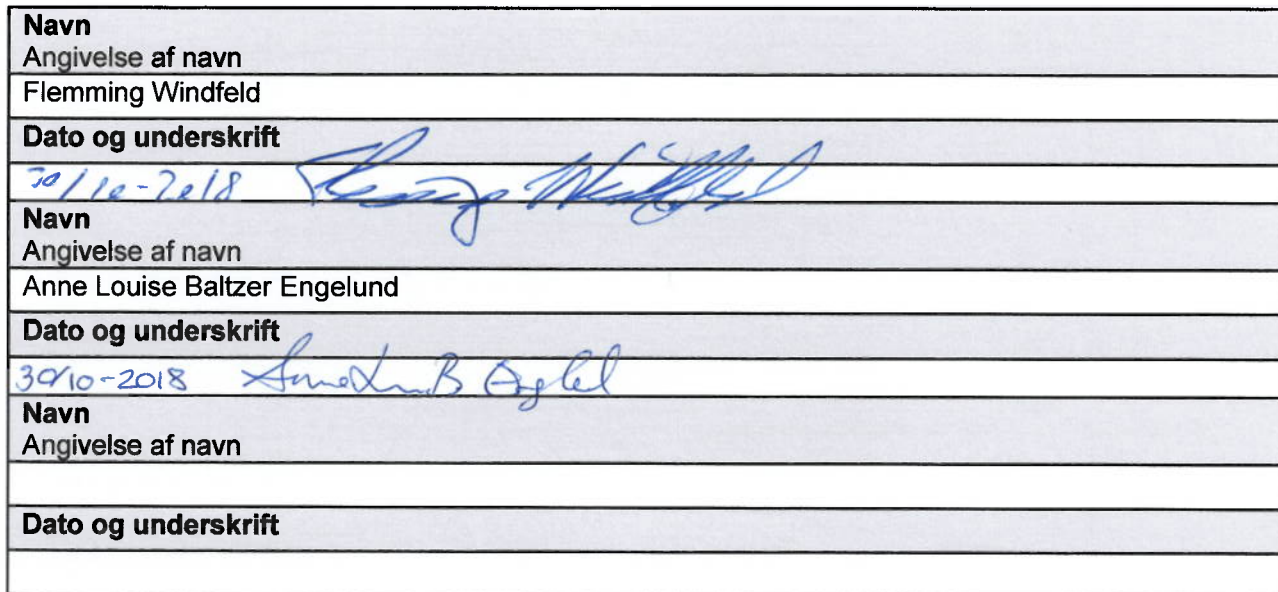 Navn
Angivelse af navn
Flemming Windfeld
Dato og underskrift
30/10-2018
Navn
Angivelse af navn
Anne Louise Baltzer Engelund
Dato og underskrift
30/10-2018
Navn
Angivelse af navn
Dato og underskrift